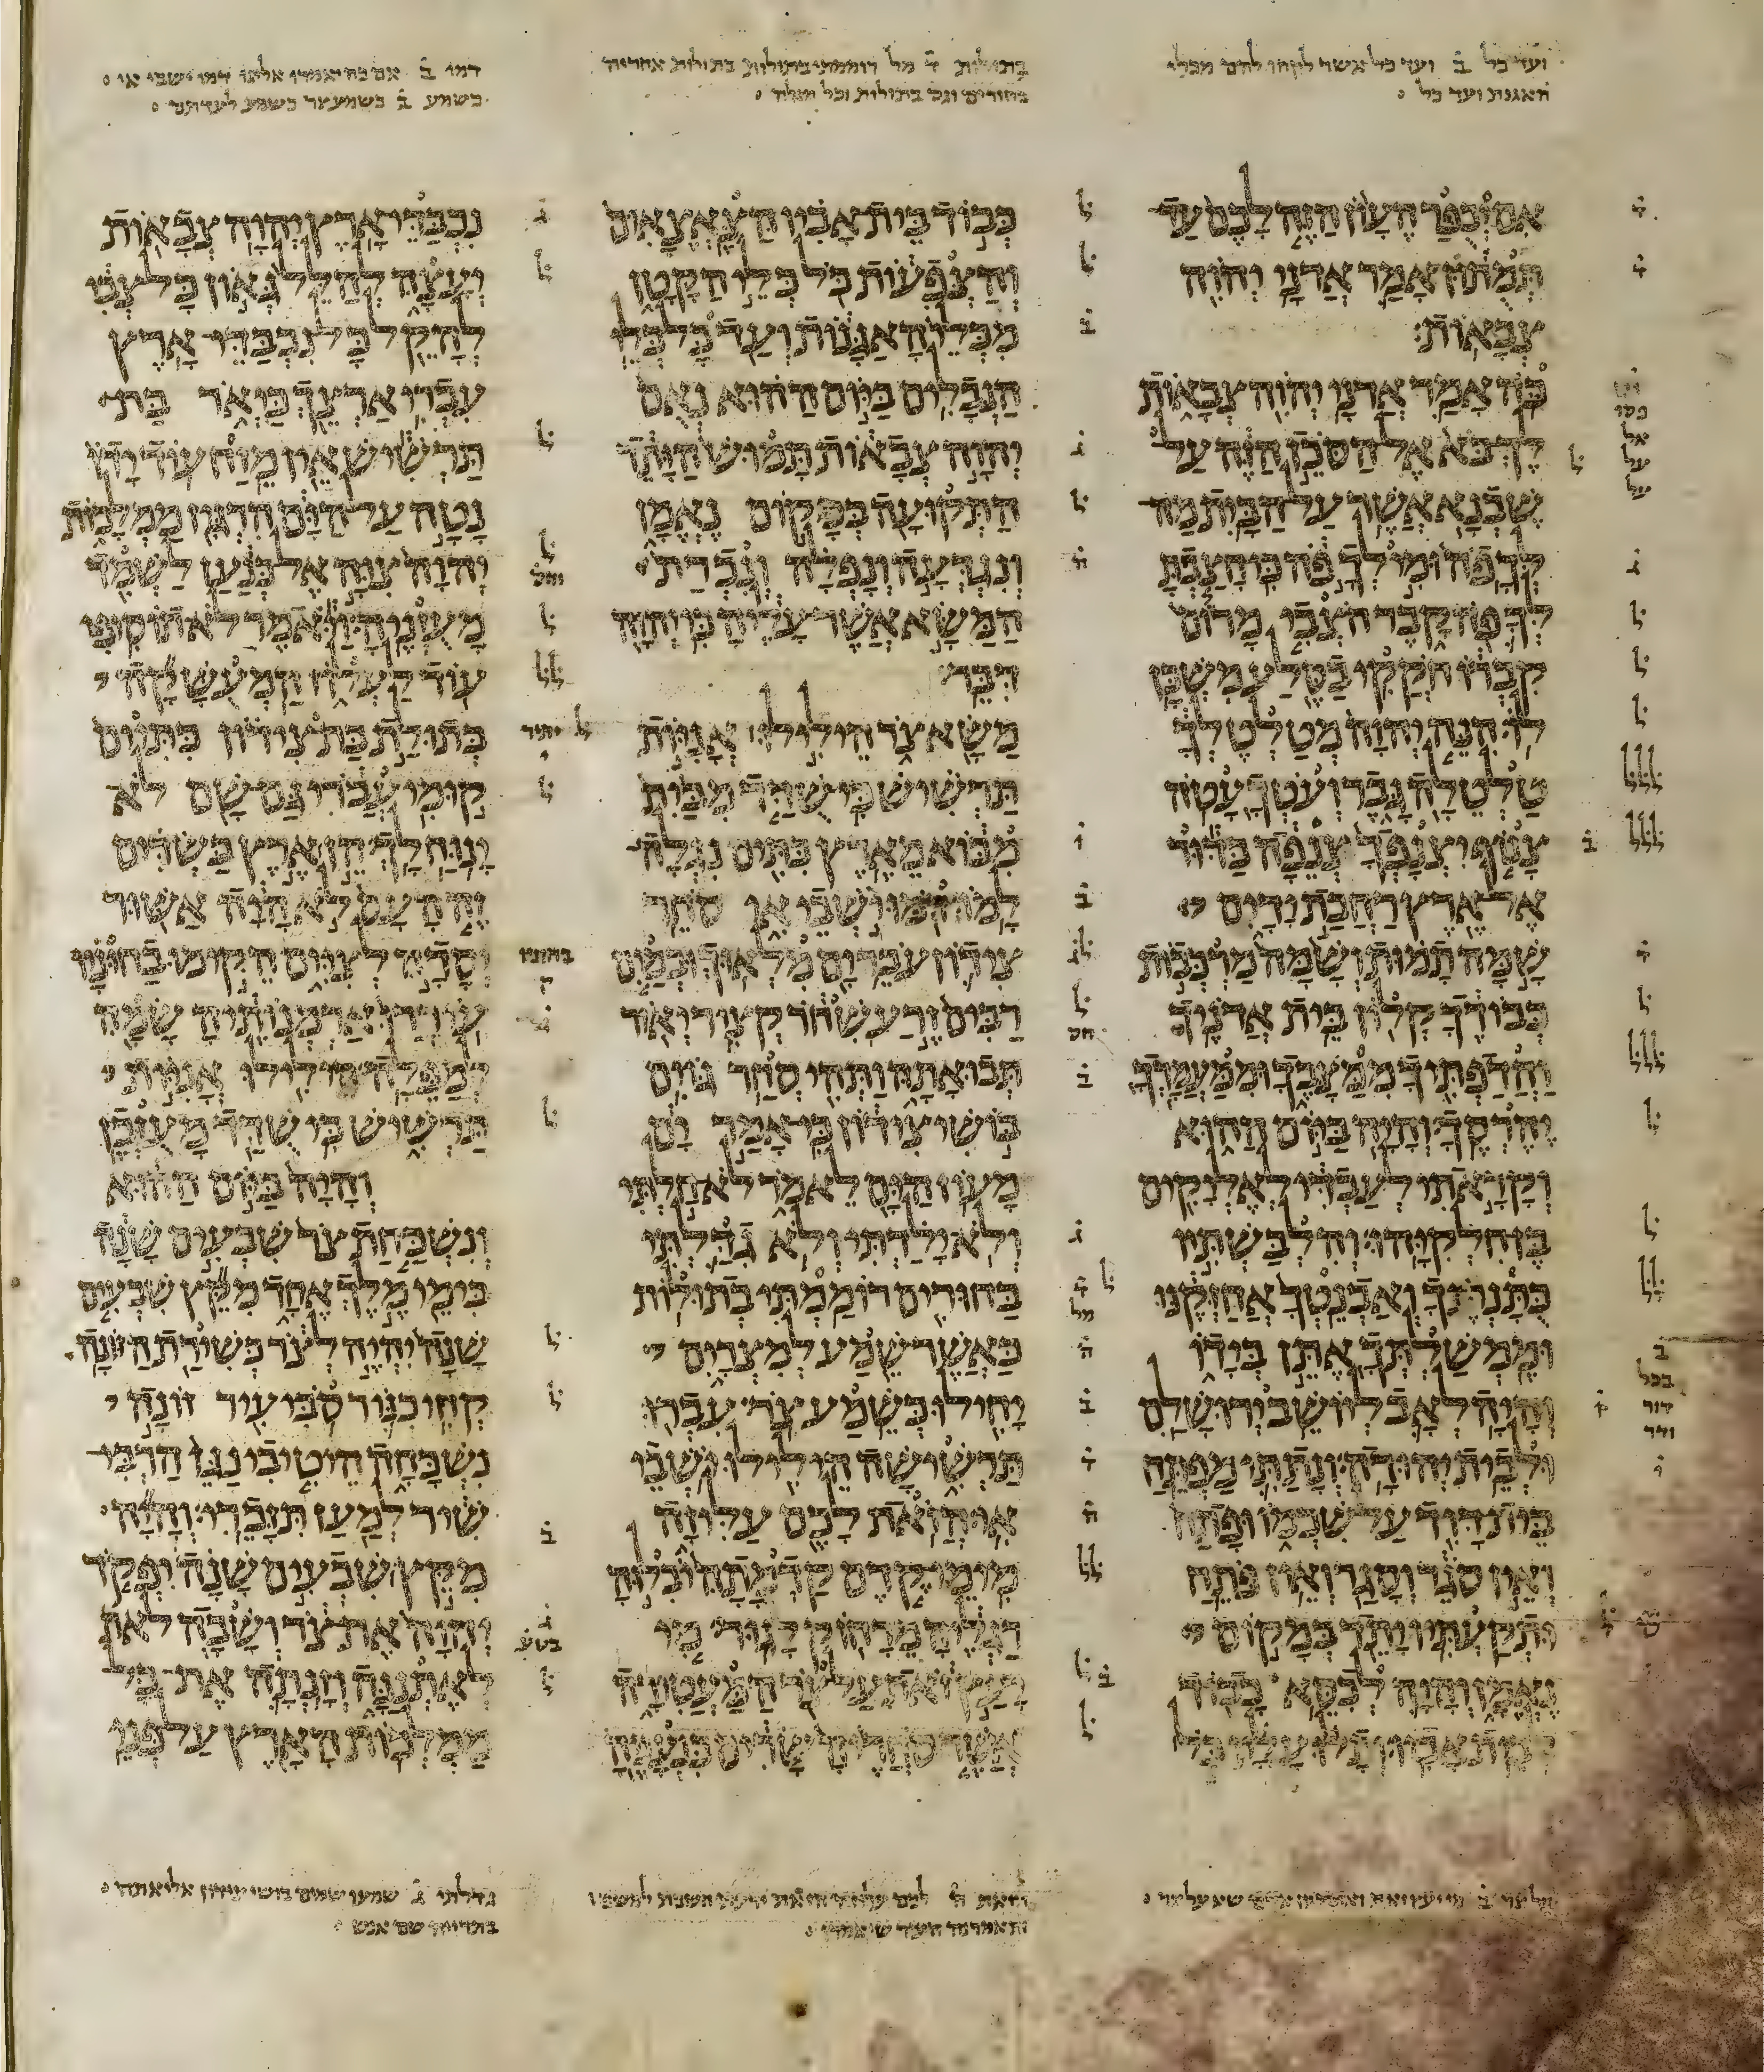 ועד כל ב ועד כל אשר לקחו להם מכלי
האגנת ועד כל
בתולות ד מל רוממתי בתולות בתולות אחריה
בחורים וגם בתולות וכל מגלה
דמו ב אם כה יאמרו אלינו דמו ישבי אי
כשמע ב כשמע צר כשמע לעדתם
אִם יְכֻפַּר הֶעָוֺן הַזֶּה לָכֶם עַד
תְּמֻתוּן אָמַר אֲדֹנָי יְהוִה
צְבָאוֹת׃
כֹּה אָמַר אֲדֹנָי יְהוִה צְבָאוֹת
לֶךְ בֹּא אֶל הַסֹּכֵן הַזֶּה עַל
שֶׁבְנָא אֲשֶׁר עַל הַבָּיִת׃ מַה
לְּךָ פֹה וּמִי לְךָ פֹה כִּי חָצַבְתָּ
לְּךָ פֹּה קָבֶר חֹצְבִי מָרוֹם
קִבְרוֹ חֹקְקִי בַסֶּלַע מִשְׁכָּן
לוֹ׃ הִנֵּה יְהוָה מְטַלְטֶלְךָ
טַלְטֵלָה גָּבֶר וְעֹטְךָ עָטֹה׃
צָנוֹף יִצְנָפְךָ צְנֵפָה כַּדּוּר
אֶל אֶרֶץ רַחֲבַת יָדָיִם
שָׁמָּה תָמוּת וְשָׁמָּה מַרְכְּבוֹת
כְּבוֹדֶךָ קְלוֹן בֵּית אֲדֹנֶיךָ׃
וַהֲדַפְתִּיךָ מִמַּצָּבֶךָ וּמִמַּעֲמָדְךָ
יֶהֶרְסֶךָ׃ וְהָיָה בַּיּוֹם הַהוּא
וְקָרָאתִי לְעַבְדִּי לְאֶלְיָקִים
בֶּן חִלְקִיָּהוּ׃ וְהִלְבַּשְׁתִּיו
כֻּתָּנְתֶּךָ וְאַבְנֵטְךָ אֲחַזְּקֶנּוּ
וּמֶמְשַׁלְתְּךָ אֶתֵּן בְּיָדוֹ
וְהָיָה לְאָב לְיוֹשֵׁב יְרוּשָׁלַם
וּלְבֵית יְהוּדָה׃ וְנָתַתִּי מַפְתֵּחַ
בֵּית דָּוִד עַל שִׁכְמוֹ וּפָתַח
וְאֵין סֹגֵר וְסָגַר וְאֵין פֹּתֵחַ׃
וּתְקַעְתִּיו יָתֵד בְּמָקוֹם
נֶאֱמָן וְהָיָה לְכִסֵּא כָבוֹד
לְבֵית אָבִיו׃ וְתָלוּ עָלָיו כֹּל
כְּבוֹד בֵּית אָבִיו הַצֶּאֱצָאִים
וְהַצְּפִעוֹת כֹּל כְּלֵי הַקָּטָן
מִכְּלֵי הָאַגָּנוֹת וְעַד כָּל כְּלֵי
הַנְּבָלִים׃ בַּיּוֹם הַהוּא נְאֻם
יְהוָה צְבָאוֹת תָּמוּשׁ הַיָּתֵד
הַתְּקוּעָה בְּמָקוֹם נֶאֱמָן
וְנִגְדְּעָה וְנָפְלָה וְנִכְרַת
הַמַּשָּׂא אֲשֶׁר עָלֶיהָ כִּי יְהוָה
דִּבֵּר׃
מַשָּׂא צֹר הֵילִילוּ אֳנִיּוֹת
תַּרְשִׁישׁ כִּי שֻׁדַּד מִבַּיִת
מִבּוֹא מֵאֶרֶץ כִּתִּים נִגְלָה
לָמוֹ׃ דֹּמּוּ יֹשְׁבֵי אִי סֹחֵר
צִידוֹן עֹבֵר יָם מִלְאוּךְ׃ וּבְמַיִם
רַבִּים זֶרַע שִׁחֹר קְצִיר יְאוֹר
תְּבוּאָתָהּ וַתְּהִי סְחַר גּוֹיִם׃
בּוֹשִׁי צִידוֹן כִּי אָמַר יָם
מָעוֹז הַיָּם לֵאמֹר לֹא חַלְתִּי
וְלֹא יָלַדְתִּי וְלֹא גִדַּלְתִּי
בַּחוּרִים רוֹמַמְתִּי בְתוּלוֹת׃
כַּאֲשֶׁר שֵׁמַע לְמִצְרָיִם
יָחִילוּ כְּשֵׁמַע צֹר׃ עִבְרוּ
תַּרְשִׁישָׁה הֵילִילוּ יֹשְׁבֵי
אִי׃ הֲזֹאת לָכֶם עַלִּיזָה
מִימֵי קֶדֶם קַדְמָתָהּ יֹבִלוּהָ
רַגְלֶיהָ מֵרָחוֹק לָגוּר׃ מִי
יָעַץ זֹאת עַל צֹר הַמַּעֲטִירָה
אֲשֶׁר סֹחֲרֶיהָ שָׂרִים כִּנְעָנֶיהָ
נִכְבַּדֵּי אָרֶץ׃ יְהוָה צְבָאוֹת
יְעָצָהּ לְחַלֵּל גְּאוֹן כָּל צְבִי
לְהָקֵל כָּל נִכְבַּדֵּי אָרֶץ׃
עִבְרִי אַרְצֵךְ כַּיְאֹר בַּת
תַּרְשִׁישׁ אֵין מֵזַח עוֹד׃ יָדוֹ
נָטָה עַל הַיָּם הִרְגִּיז מַמְלָכוֹת
יְהוָה צִוָּה אֶל כְּנַעַן לַשְׁמִד
מָעֻזְנֶיהָ׃ וַיֹּאמֶר לֹא תוֹסִיפִי
עוֹד לַעְלוֹז הַמְעֻשָּׁקָה
בְּתוּלַת בַּת צִידוֹן כִּתִּיִּים
קוּמִי עֲבֹרִי גַּם שָׁם לֹא
יָנוּחַ לָךְ׃ הֵן אֶרֶץ כַּשְׂדִּים
זֶה הָעָם לֹא הָיָה אַשּׁוּר
יְסָדָהּ לְצִיִּים הֵקִימוּ בַחִינָיו
עֹרְרוּ אַרְמְנוֹתֶיהָ שָׂמָהּ
לְמַפֵּלָה׃ הֵילִילוּ אֳנִיּוֹת
תַּרְשִׁישׁ כִּי שֻׁדַּד מָעֻזְּכֶן׃
וְהָיָה בַּיּוֹם הַהוּא
וְנִשְׁכַּחַת צֹר שִׁבְעִים שָׁנָה
כִּימֵי מֶלֶךְ אֶחָד מִקֵּץ שִׁבְעִים
שָׁנָה יִהְיֶה לְצֹר כְּשִׁירַת הַזּוֹנָה׃
קְחִי כִנּוֹר סֹבִּי עִיר זוֹנָה
נִשְׁכָּחָה הֵיטִיבִי נַגֵּן הַרְבִּי
שִׁיר לְמַעַן תִּזָּכֵרִי׃ וְהָיָה
מִקֵּץ שִׁבְעִים שָׁנָה יִפְקֹד
יְהוָה אֶת צֹר וְשָׁבָה
לְאֶתְנַנָּהּ וְזָנְתָה אֶת כָּל
מַמְלְכוֹת הָאָרֶץ עַל פְּנֵי
גדלתי ג שמעו שמים בושי צידון